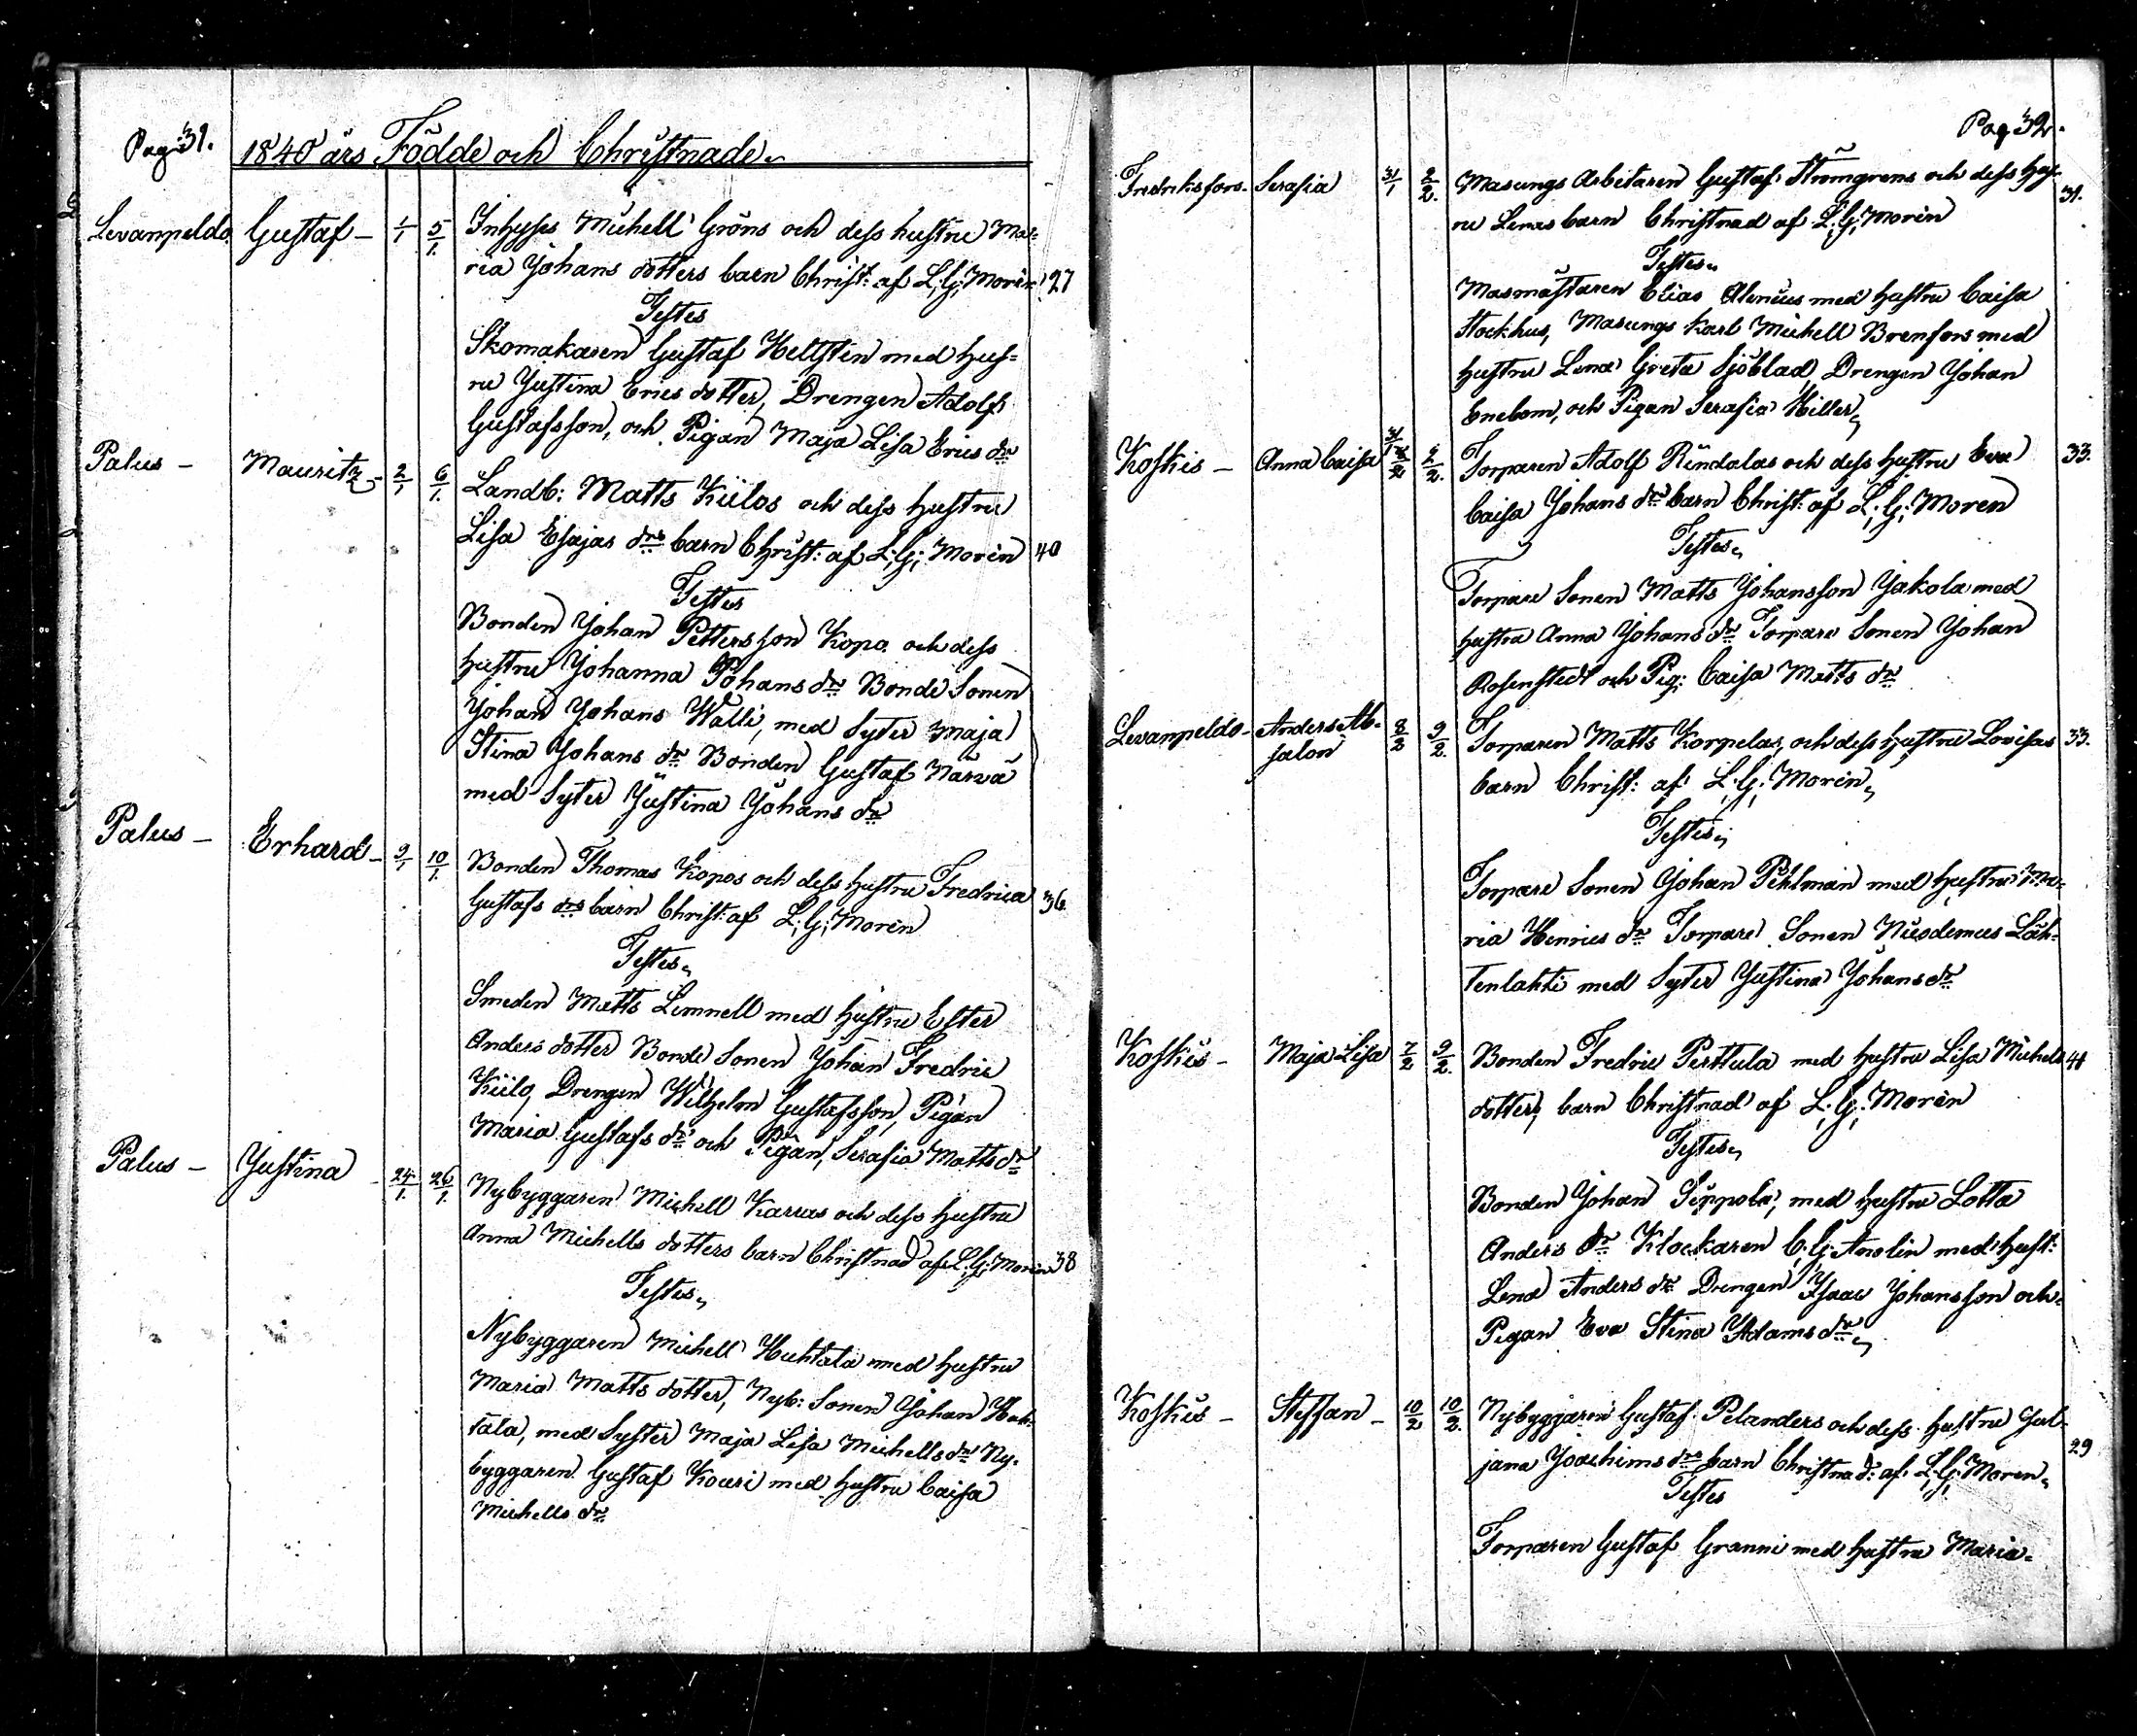 Pag 31.
1840 års Födde och Christnade.
Levanpeldo Gustaf - 1/1 5/1. Inhyses Michell Gröns och dess hustru Ma=
ria Johans dotters barn Christ: af L: G: Morén 27
Testes
Skomakaren Gustaf Hellstén med hus=
ru Justina Erics dotter, Drengen Adolf
Gustafsson, och Pigan Maja Lisa Erics dr
Palus - Mauritz - 2/1 6/1. Landb: Matts Kiilos och dess hustru
Lisa Esajas drs barn Christ: af L: G: Morén 40
Testes
Bonden Johan Pettersson Kopo och dess
hustru Johanna Johans dr Bonde Sonen
Johan Johans Walli, med Syter Maja
Stina Johans dr Bonden Gustaf Närvä
med Syter Justina Johans dr
Palus - Erhard - 9/1 10/1. Bonden Thomas Kopos och dess hustru Fredrica 36
Gustafs drs barn Christ: af L: G: Morén
Testes
Smeden Matts Lemnell med hustru Ester
Anders dotter Bonde Sonen Johan Fredric
Kiilo, Drengen Wilhelm Gustafsson, Pigan
Maria Gustafs dr och Pigan, Serafia Matts dr
Palus - Justina - 24/1. 26/1. Nybyggaren Michell Karras och dess hustru
Anna Michells dotters barn Christnad af L: G: Morén 38
Testes
Nybyggaren Michell Huhtala med hustru
Maria Matts dotter, Nyb: Sonen Johan Huh-
tala, med Syster Maja Lisa Michells dr Ny-
byggaren Gustaf Koari med hustru Caisa
Michells dr
Pag 32.
Fredriksfors. Serafia 31/1 2/2. Masungs Arbetaren Gustaf Strömgrens och dess hus- 31.
ru Lenas barn Christnad af L: G: Morén
Testes
Masmästaren Elias Alenius med hustru Caisa
Stockhus, Masungs Karl Michell Brenfors med
hustru Lena Greta Sjöblad, Drengen Johan
Enebom, och Pigan Serafia Hiller
Koskis - Anna Caisa 31/1 2/2. Torparen Adolf Rindalas och dess hustru Eva 33.
Caisa Johans drs barn Christ: af L: G: Moren
Testes
Torpare Sonen Matts Johansson Jakola med
hustru Anna Johans dr Torpare Sonen Johan
Rosenstedt och Pig: Caisa Matts dr
Levanpeldo - Anders Ab- 8/2 9/2. Torparen Matts Korpelas, och dess hustru Lovisas 33.
salon barn Christ: af L: G: Morén
Testes
Torpare Sonen Johan Pehlman med hustru Ma-
ria Henrics dr Torpare Sonen Nicodemus Läh-
tenlahti med Syter Justina Johans dr
Koskis - Maja Lisa 7/2 9/2. Bonden Fredric Perttula med hustru Lisa Michels 41
dotters, barn Christnad af L: G: Morén
Testes
Bonden Johan Seppola, med hustru Lotta
Anders dr Klockaren C: G: Anolin med hust:
Lena Anders dr Drengen Isaac Johansson och
Pigan Eva Stina Adams dr
Koskis - Steffan - 10/2 10/2. Nybyggaren Gustaf Pelanders och dess hustru Jul-
jana Joachims drs barn Christnad: af L: G: Moren 29
Testes
Torparen Gustaf Granni med hustru Maria